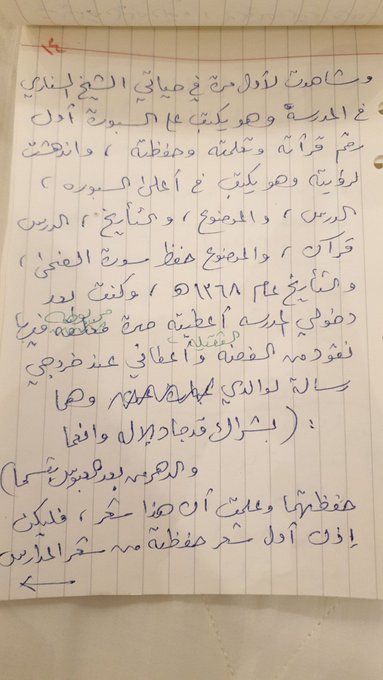 ١٣
وشاهدت لأول مرة في حياتي الشيخ السنادي
في المدرسة وهو يكتب على السبورة أول
رقم قرأته وتعلمته وحفظته ، واندهشت
لرؤيته وهو يكتب في أعلى السبوره ،
الدرس ، والموضوع ، والتأريخ ، الدرس
قرآن ، والموضوع حفظ سورة الضحى ،
والتأريخ عام ١٣٦٨ھ ، وكنت بعد
دخولي المدرسه أعطيته صرة مربوطة فيها
نقود من الفضه الثقيلة وأعطاني عند خروجي
رسالة لوالدي وهما
: ( بشراك قد جاد الإله وأنعما
والدهر من بعد العبوس تبسما )
حفظتهما وعلمت أن هذا شعر ، فليكن
إذن أول شعر حفظته من شعر المدارس